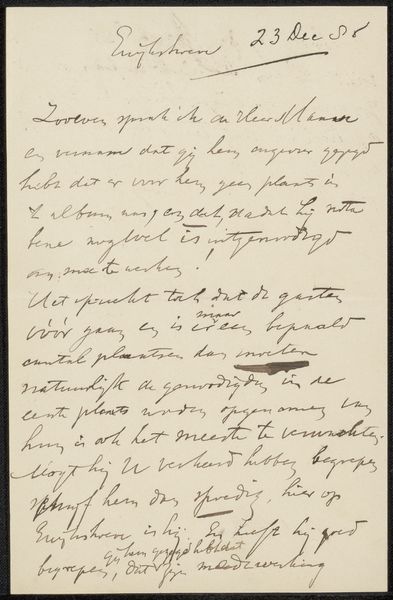 23 Dec 88
Zooeven sprak ik den Heer
en vernam dat gij hem ongeveer gezegd
hebt dat er voor hem geen plaats in
't album was, en dat, nadat hij nota
bene nog wel is uitgenoodigd
om mee te werken!
Het spreekt toch dat de gasten
vóór gaan en is maar een bepaald
aantal plaatsen dan moeten
natuurlijk de genoodigden in de
eerste plaats worden opgenomen van
hun is ook het meeste te verwachten.
Mogt hij U verkeerd hebben begrepen
schrijf hem dan spoedig, hier op
is hij. En heeft hij goed
begrepen, dat gij hem gezegd hebt dat zijn medewerking